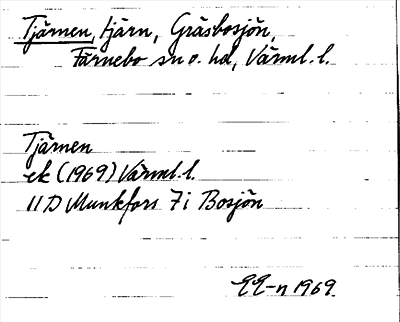 Tjärnen, tjärn, Gräsbosjön,
Färnebo sn o. hd, Värml. l.
Tjärnen
ek (1969) Värml. l.
11D Munkfors 7i Bosjön
EE-n 1969.